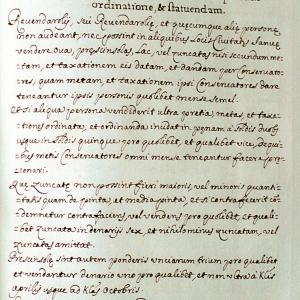 ordinatione, & statuendam.
Revendarilij, sei Revendarilie, et quęcumque alie persone
non audeant, nec possint in aliquibus locis Civitatis Sanve
vendere ova, presunsras, lac, vel zuncatas nisi secundum me-
tam, et taxationem eis datam, et dandam per Conservato-
res, quam metam, et taxationem ipsi Conservatores dare
teneantur ipsis personis quolibet mense semel.
Et si aliqua persona vendiderit ultra pretia, metas, et taxa-
tiones ordinatas, et ordinanda inuidat in penam a Sldis duob
usque in Sldis quinque pro quolibet, et qualibet vice, de qui-
bus metis Conservatores omni mense teneantur facere pre-
conari.
Que zuncate non possint fieri maioris, vel minoris quan-
titatis quam de pinta, et media pinta, et si contrafecerit con-
demnetur contrafaciens, vel vendens pro quolibet, et quali-
bet zuncata in denarijs sex, et nihilominus zuncatam, vel
zuncatas amittat.
sint autem ponderis unziarum trium pro qualibet
et vendantur denario uno pro qualibet, et non ultra à Klis
aprilis usque ad Klas Octobris.